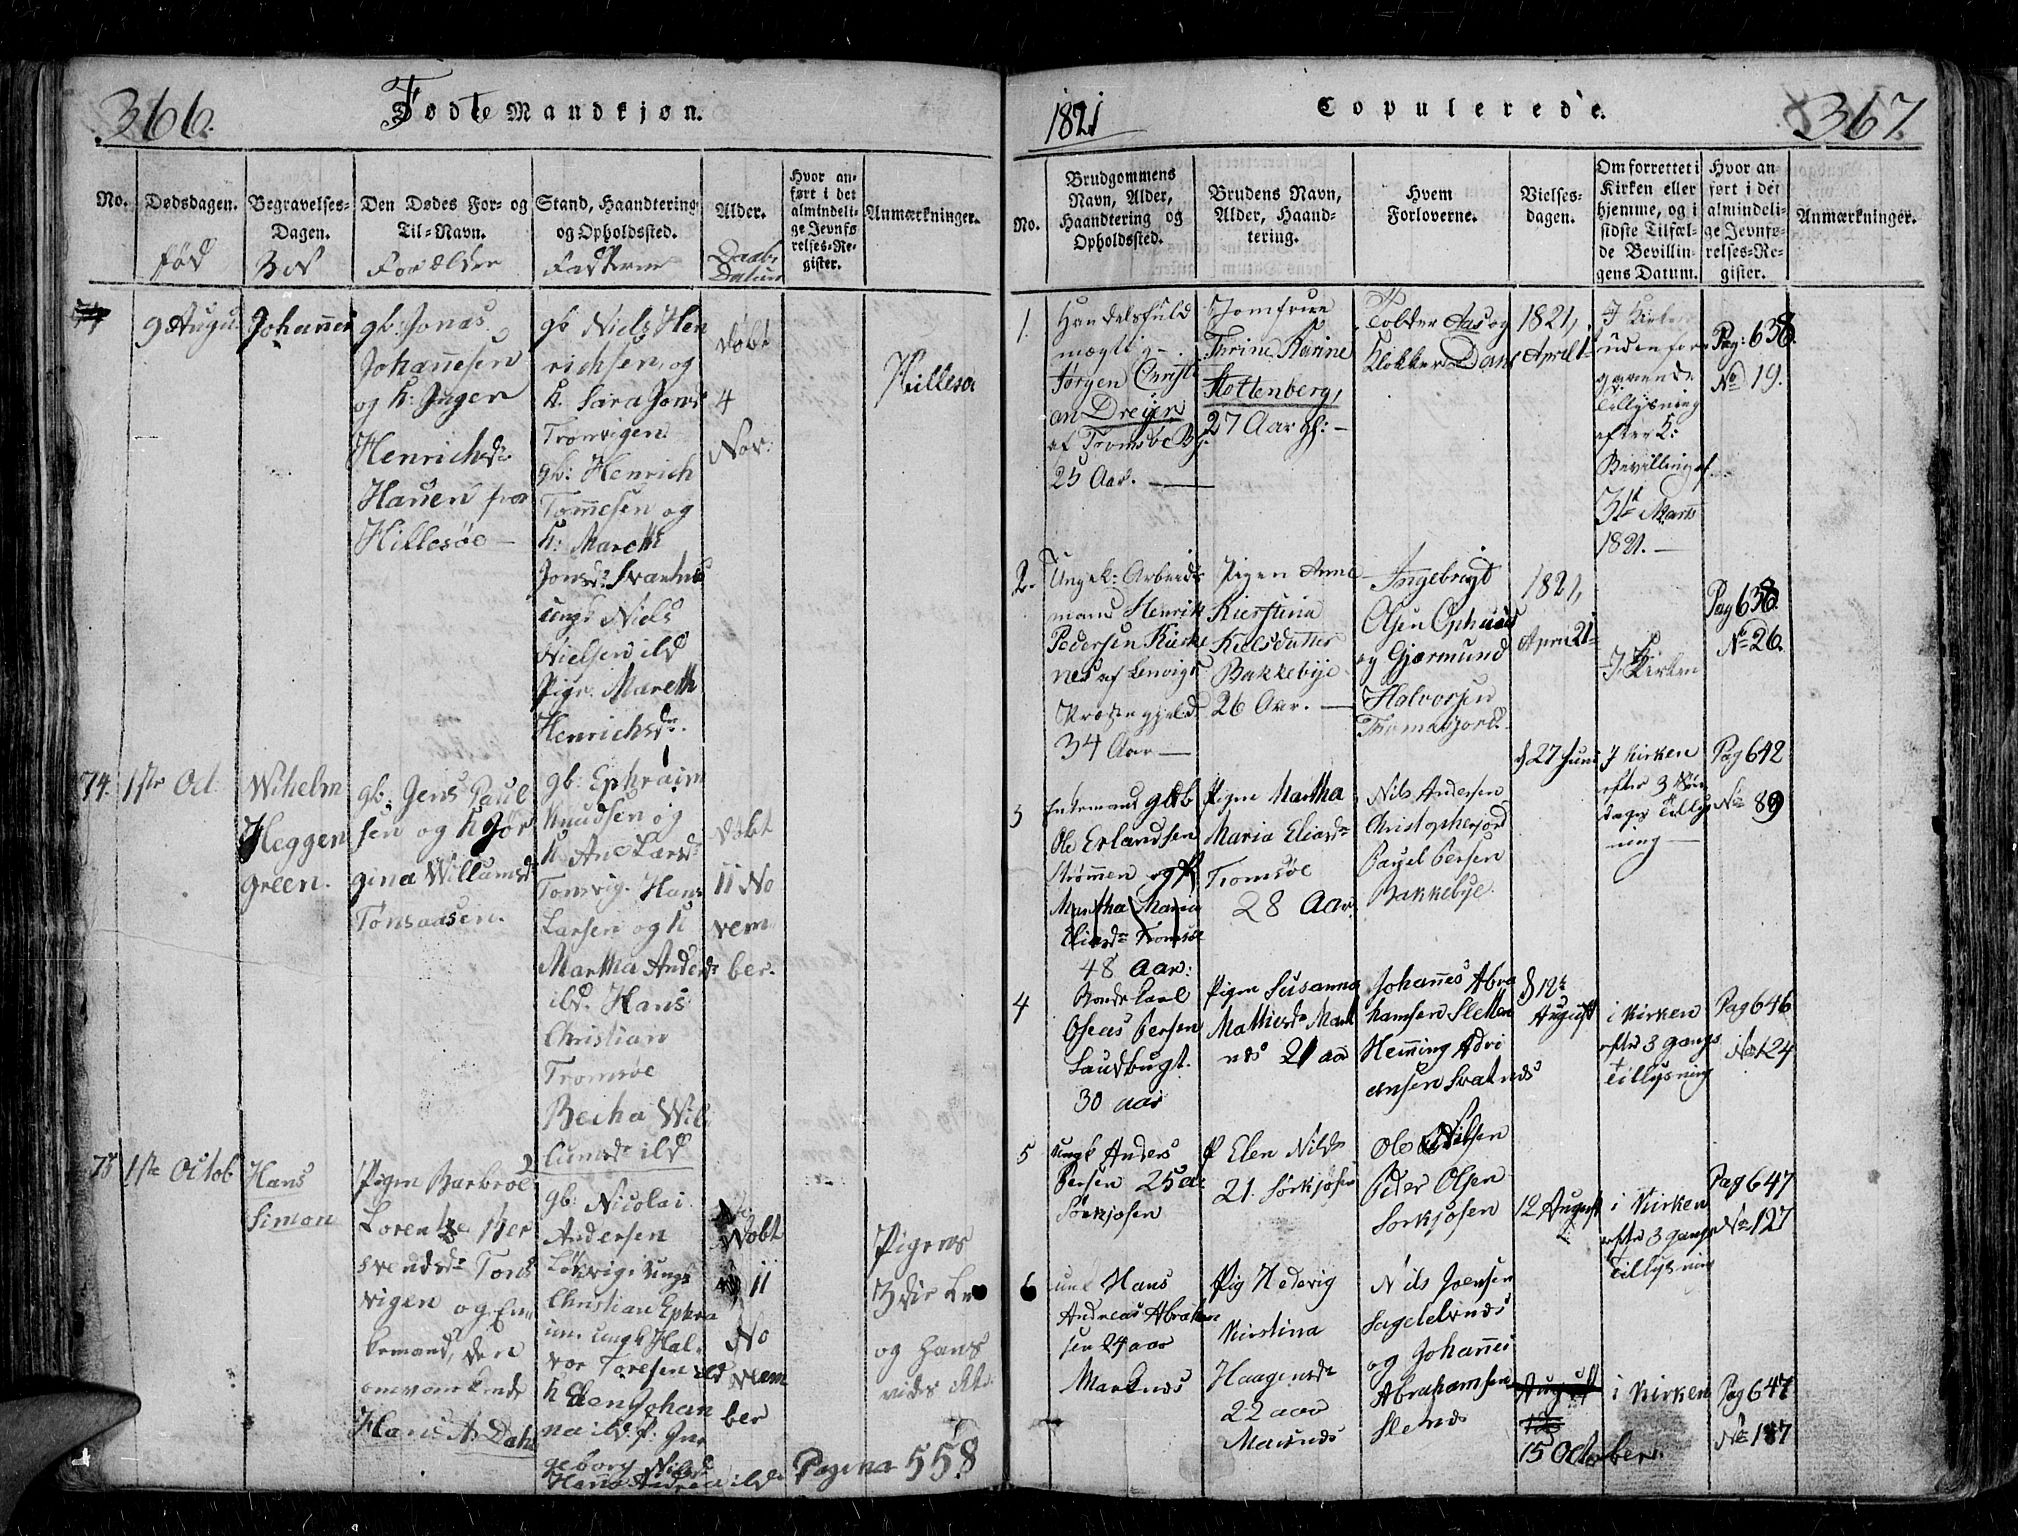 366.
Fødte Mandkjøn.
No.
Dødsdagen.
fød
Begravelses-
Dagen.
Den Dødes For- og
Til-Navn.
Forældre
Stand, Haandtering
og Opholdssted.
Faderne
Alder.
Daabs
Datum
Hvor an-
ført i det
almindeli-
ge Jevnfø-
relses-Re-
gister.
Anmærkninger.
9 Augu
Johannes
gb: Jonas
Johannesen
og K: Inger
Henrichsdr
Hauen fra
Hillesøe
gb Niels Hen
richsen og
K. Sara Jons
Tronvigen
gb: Henrich
Tommesen og
K: Mareth
Jonsdr Svartnes
ungk Niels
Nielsen ild
Pige Mareth
Henrichsdr.
døbt
4
Nov:
Hillesø
74.
1ste Oct
Wihelm
Heggen
green.
gb. Jens Paul
sen og K Jør
gina Willumsdr
Tønsaasen.
gb: Ephraim
Knudsen og
K Ane Larsdr
Tomvig. Hans
Larsen og K
Martha Andersdr
ild. Hans
Christian
Tromsøe
Becha Wil
lumsdr ild
døbt
11 No
vem
ber.
75
1ste Octob
Hans
Simon
Pigen Barbroe
Lorentze Her
svendsdr Tons
vigen og En
kemand, den
omvankende
Hans A. Dahl
gb: Nicolai
Andersen
Løkvig. ungk
Christian Ephra
im. ungk Hal
vor Toresen ild
K Elen Johan
na ild. P. In
geborg Nilsdr
Hans Andrea ild
døbt
11
No
vem
ber
Pigens
3die Le
og Hans
vides ikke
Pagina 558

1821
Copulerede.
367.
No.
Brudgommens
Navn, Alder,
Haandtering og
Opholdssted.
Brudens Navn,
Alder, Haand-
tering.
Hvem
Forloverne.
Vielses-
dagen.
Om forrettet i
Kirken eller
hjemme, og i
sidste Tilfæl-
de Bevillin-
gens Datum.
Hvor an
ført i det
almindeli-
ge Jevnfø-
relses-Re-
gister.
Anmærkninger.
1.
Handelsfuld
mægtig
Jørgen Christi
an Dreyer
af Tromsøe By.
25 Aar.
Jomfrue
Thrine Karine
Stoltenberg,
27 Aar gl:
Tolder Aas og
Klokker Dons
1821,
April 1
I Kirken
uden fore
gaaende
tillysning
efter K:
Bevilling af
31te Marts
1821.
Pag: 638.
No 19.
2.
Ungk: Arbeids
mand Henrik
Pedersen Kirke
nes af Lenvigs
Præstegjeld
34 Aar
Pigen Anne
Kierstina
Kielsdatter
Bakkebye
26 Aar.
Ingebrigt
Olsen Ophuus
og Gjermund
Halvorsen
Thomasjord.
1821,
April 21
I Kirken
Pag 638.
No 26.
3
Enkemand gb
Ole Erlandsen
Strømmen og P
Martha Maria
Eliasdr Tromsøe
48 Aar:
Pigen Martha
Maria Eliasdr
Tromsøe
28 Aar
Nils Andersen
Christophersjord
Paul Persen
Bakkebye.
d 27 Juni
I Kirken
efter 3 Søn
dages Tillys
ning
Pag 642
No 89
4
Bonde Karl
Oseas Persen
Laudbugt.
30 aar
Pigen Susanna
Mathisdr Mark
nes 21 aar
Johannes Abra
hamsen Sletten
Henning Adri
ansen Svatnes
d 12te
August
i Kirken
efter 3 gangs
tillysning
Pag 646
No 124
5
ungk Anders
Persen 25 a
Sørkjosen
P Elen Nilsdr
21. Sørkjosen
Ole Nilsen
Peder Olsen
Sorkjosen
12 August
i Kirken
efter 3 gangs
Tillysning
Pag 647
No 127
6
unk Hans
Andreas Abraham
sen 24 aar
Marknes
Pig Hedevig
Kirstina
Haagensdr
22 aar
Nils Joensen
Sagelvnes
og Johannes
Abrahamsen
Sletnes
August
12
15 October.
i Kirken
Pag 647
No 187